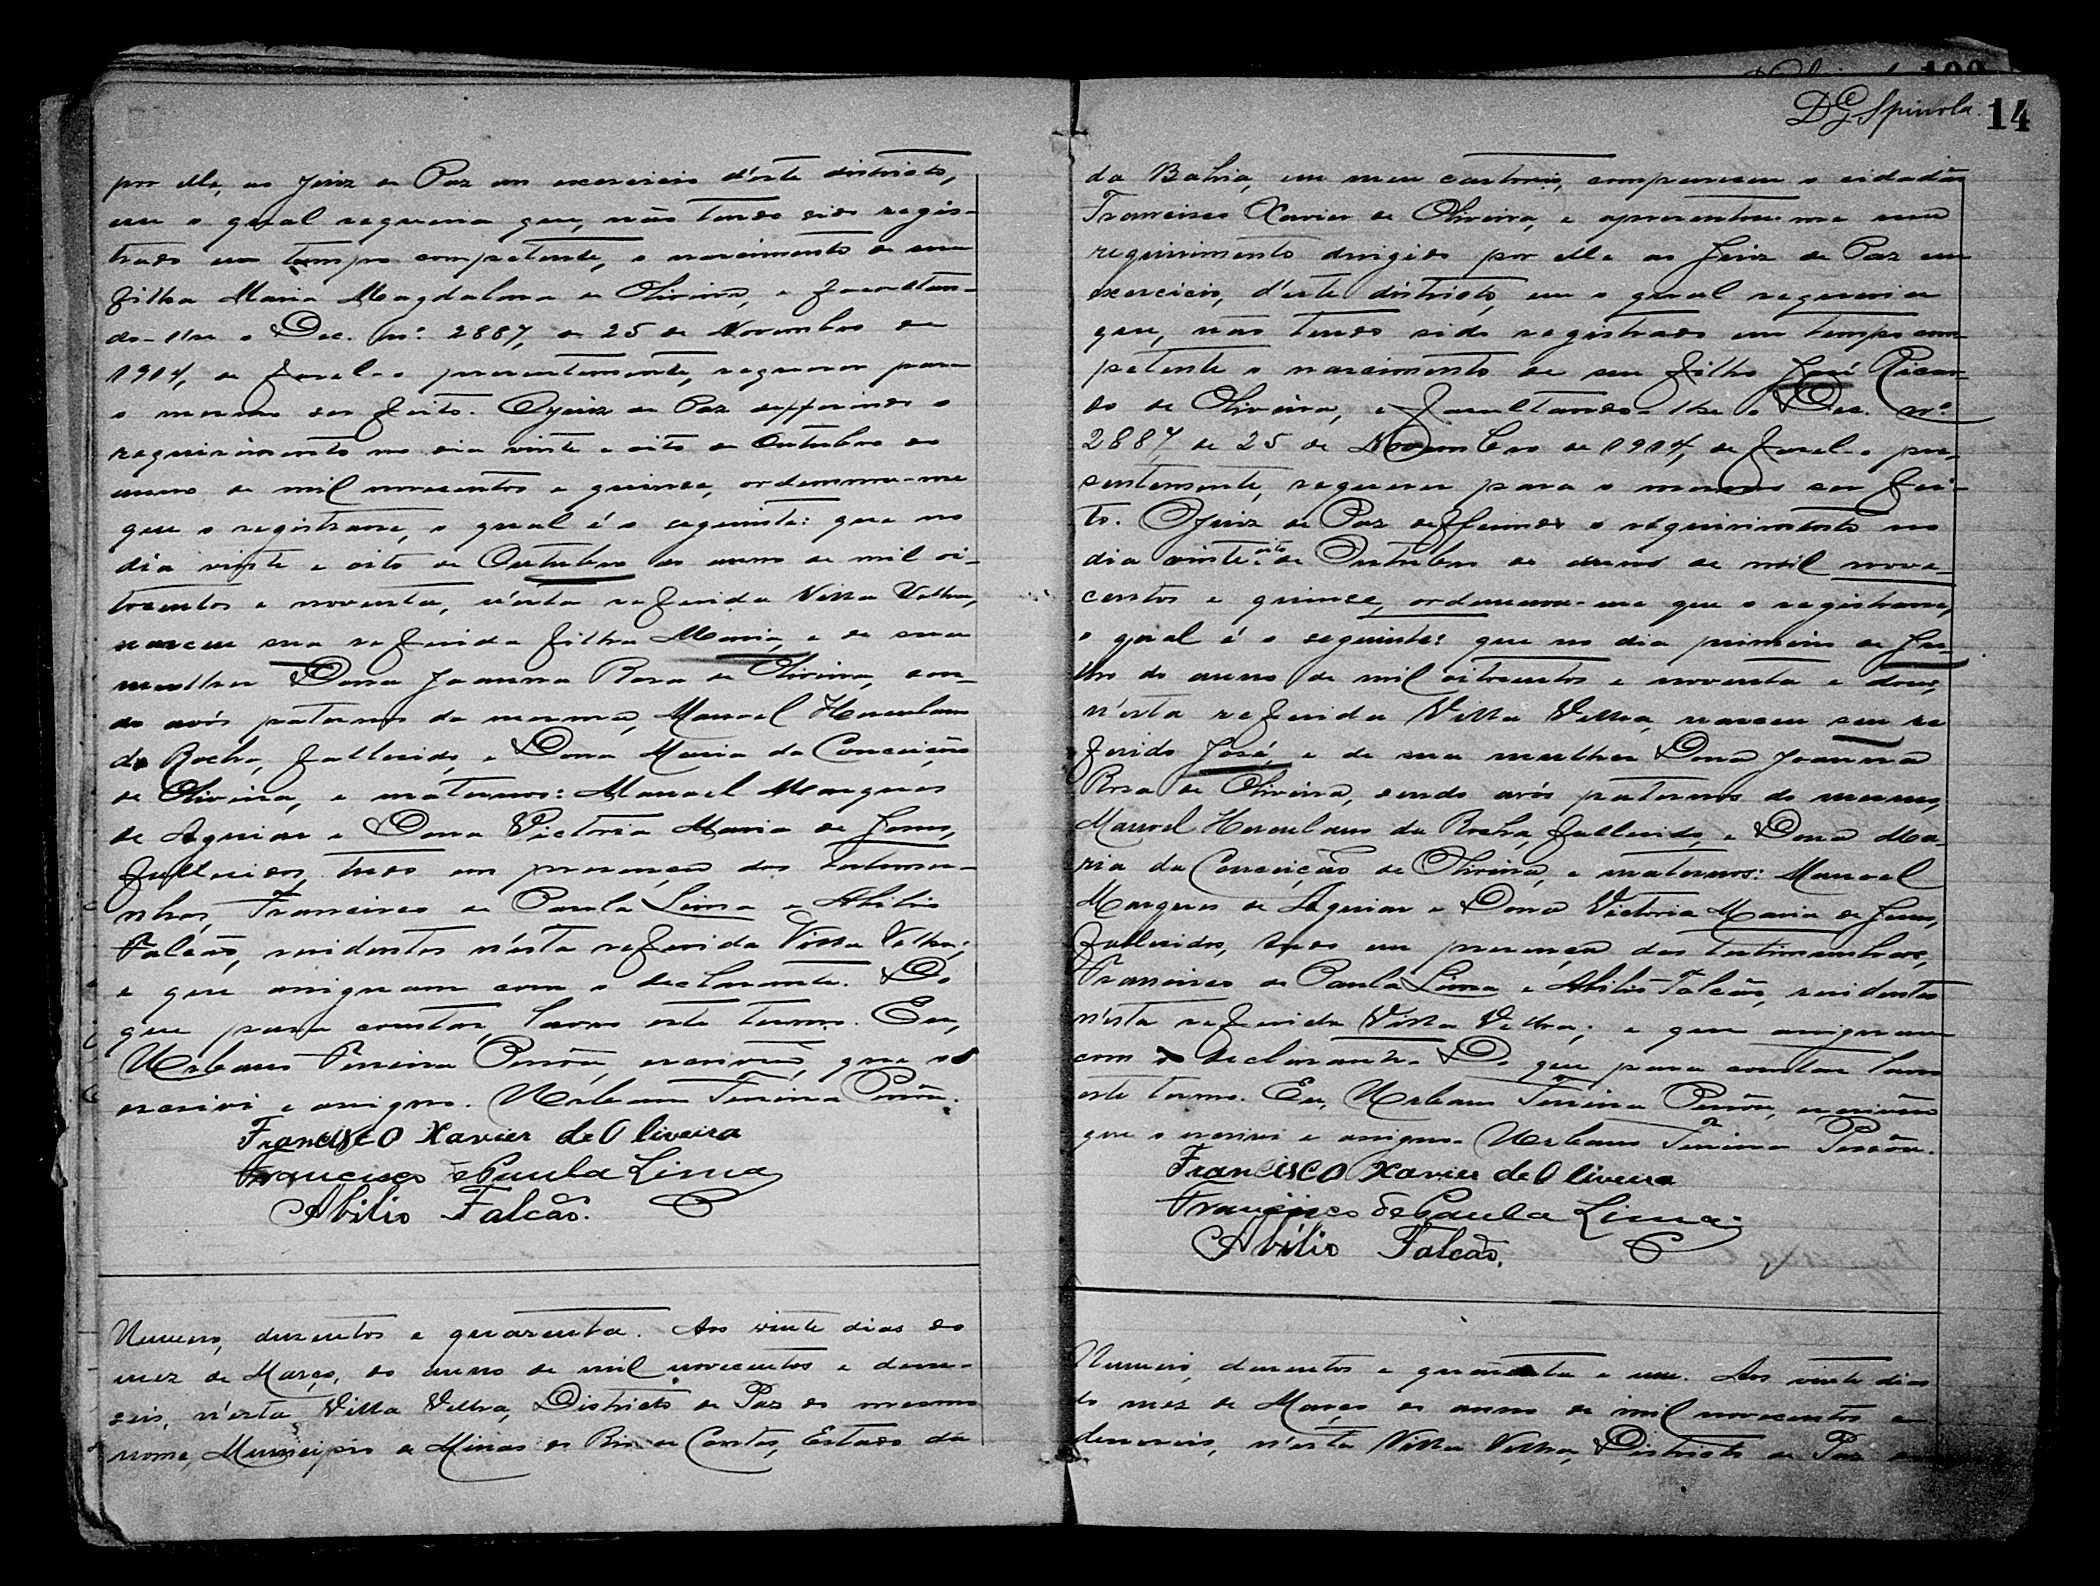 por elle, ao Juiz de Paz em exercicio d'este districto,
em o qual requeria que, não tendo sido regis-
trado em tempo competente, o nascimento de sua
filha Maria Magdalena de Oliveira, e facultan-
do-lhe o Dec. nº 2887, de 25 de Novembro de
1914, de fazel-o presentemente, requerer para
o mesmo ser feito. O Juiz de Paz defferindo o
requerimento no dia vinte e oito de Outubro do
anno de mil novecentos e quinze, ordenou-me
que o registrasse, o qual é o seguinte: que no
dia vinte e oito de Outubro do anno de mil oi-
tocentos e noventa, n'esta referida Villa Velha,
nasceu sua referida filha Maria, e de sua
mulher Dona Joanna Rosa de Oliveira, sen-
do avós paternos da mesma, Manoel Herculano
da Rocha, fallecido, e Dona Maria da Conceição
de Oliveira, e maternos: Manoel Marques
de Aguiar e Dona Victoria Maria de Jesus,
fallecidos, tudo em presença das testemu-
nhas, Francisco de Paula Lima e Abilio
Falcão, residentes n'esta referida Villa Velha;
e que assignam com o declarante. Do
que para constar, lavro este termo. Eu,
Urbano Pereira Pessôa, escrivão, que o
escrevi e assigno. Urbano Pereira Pessôa.
Francisco Xavier de Oliveira
Francisco de Paula Lima
Abilio Falcão.
Numero, duzentos e quarenta. Aos vinte dias do
mez de Março, do anno de mil novecentos e dese-
seis, n'esta Villa Velha, Districto de Paz do mesmo
nome, Municipio de Minas do Rio de Contas, Estado da
D G Spinola 14
da Bahia, em meu cartorio, compareceu o cidadão
Francisco Xavier de Oliveira, e apresentou-me um
requerimento dirigido por elle ao Juiz de Paz em
exercicio, d'este districto, em o qual requeria
que, não tendo sido registrado em tempo com-
petente o nascimento de seu filho José Ricar-
do de Oliveira, e facultando-lhe o Dec. nº
2887 de 25 de Novembro de 1914, de fazel-o pre-
sentemente, requerer para o mesmo ser fei-
to. O Juiz de Paz defferindo o requerimento no
dia vinte e oito de Outubro do anno de mil nove-
centos e quinze, ordenou-me que o registrasse,
o qual é o seguinte: que no dia primeiro de Ju-
lho do anno de mil oitocentos e noventa e dous,
n'esta referida Villa Velha, nasceu seu re
ferido José, e de sua mulher Dona Joanna
Rosa de Oliveira, sendo avós paternos do mesmo,
Manoel Herculano da Rocha, fallecido, e Dona Ma-
ria da Conceição de Oliveira, e maternos: Manoel
Marques de Aguiar e Dona Victoria Maria de Jesus,
fallecidos, tudo em presença das testemunhas,
Francisco de Paula Lima e Abilio Falcão, residentes
n'esta referida Villa Velha; e que assignam
com o declarante. Do que para constar lavro
este termo. Eu, Urbano Pereira Pessôa, escrivão
que o escrevi e assigno. Urbano Pereira Pessôa.
Francisco Xavier de Oliveira
Francisco de Paula Lima
Abilio Falcão.
Numero, duzentos e quarenta e um. Aos vinte dias
do mez de Março do anno de mil novecentos e
deseseis, n'esta Villa Velha, Districto de Paz do